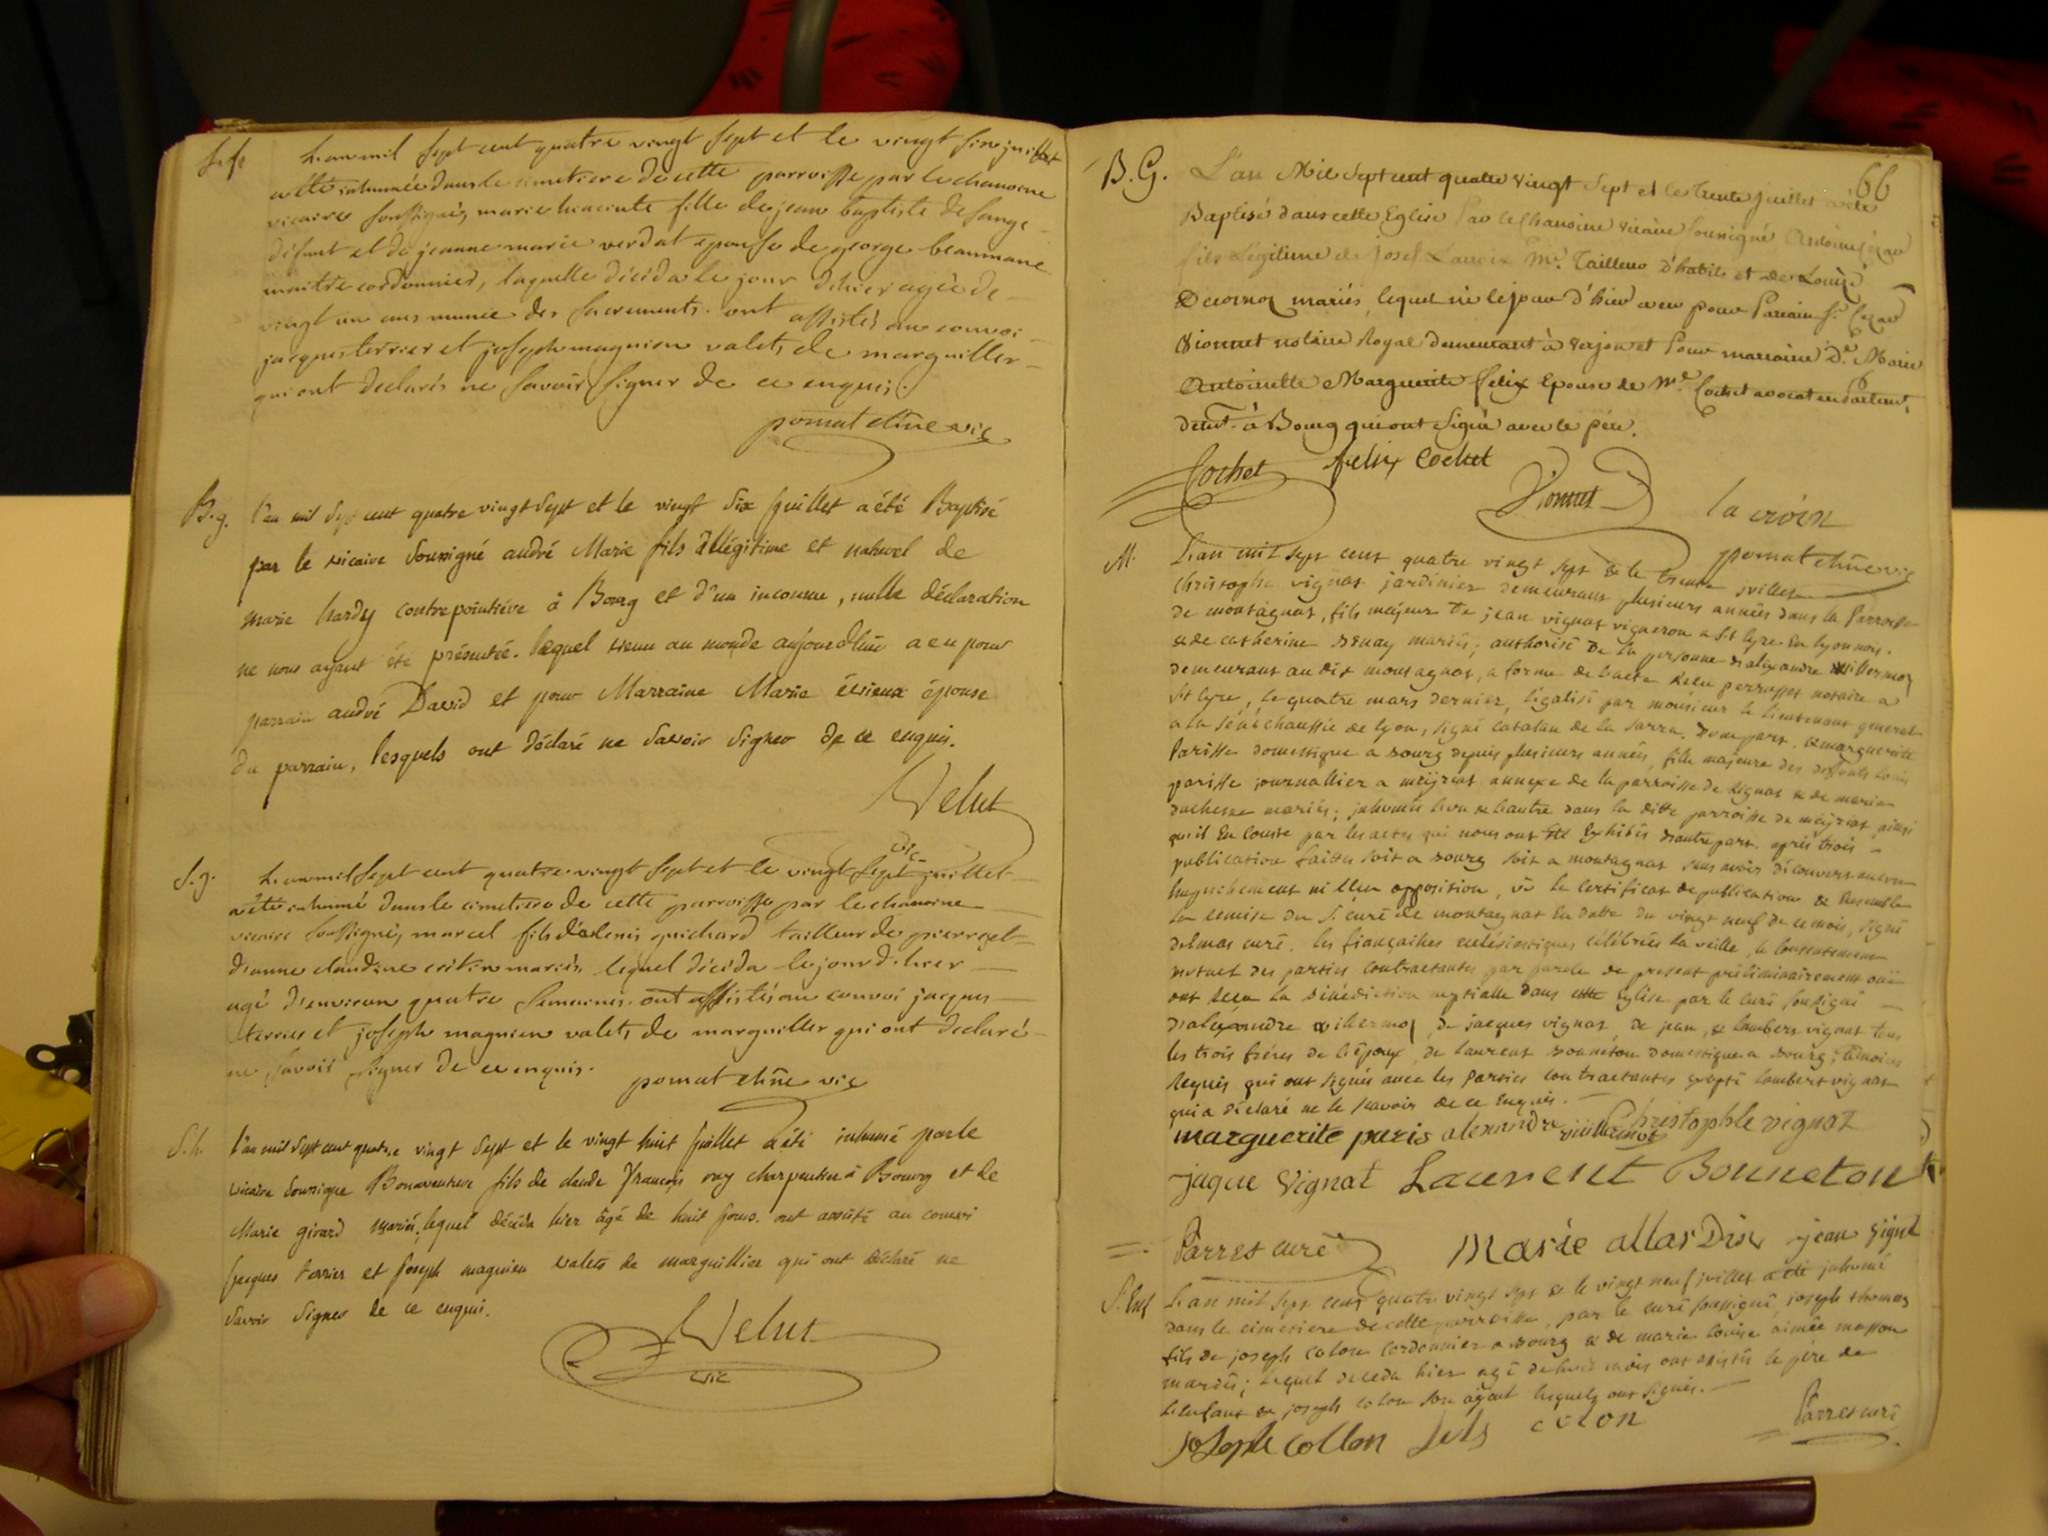 S. fe
L'an mil sept cent quatre vingt sept et le vingt six juillet
a été inhumée dans le cimetiere de cette parroisse par le chanoine
vicaire soussigné, marie hiacinte fille de jean baptiste
défunt et de jeanne marie verdat épouse de george beaumane
maitre cordonnier, laquelle décéda le jour d'hier agée de
vingt un ans munie des sacrements. ont assistés au convoi
jacques terrier et joseph magnien valets de marguiller
qui ont declarés ne savoir signer de ce enquis.
pomat chne vic
B. g.
l'an mil sept cent quatre vingt sept et le vingt six juillet a été Baptisé
par le vicaire soussigné andré Marie fils illégitime et naturel de
marie hardy contrepointière à Bourg et d'un inconnu, nulle déclaration
ne nous ayant été présentée. lequel venu au monde aujourd'hui a eu pour
parrain andré David et pour Marraine Marie épouse
du parrain, lesquels ont déclaré ne savoir signer de ce enquis.
Velut
vic
S. g.
L'an mil sept cent quatre vingt sept et le vingt sept juillet
a été inhumé dans le cimetiere de cette parroisse par le chanoine
vicaire soussigné, marcel fils de denis guichard tailleur de pierre et
d'anne claudine mariés, lequel décéda le jour d'hier
agé d'environ quatre semaines. ont assistés au convoi jacques
terrier et joseph magnien valets de marguiller qui ont declaré
ne savoir signer de ce enquis.
pomat chne vic
S. h.
l'an mil sept cent quatre vingt sept et le vingt huit juillet a été inhumé par le
vicaire soussigné Bonaventure fils de claude françois ouy charpentier à Bourg et de
Marie girard mariés, lequel décéda hier âgé de huit jours. ont assisté au convoi
jacques terrier et joseph magnien valets de marguillier qui ont déclaré ne
savoir signer de ce enquis.
Velut
vic
66
B. G.
L'an Mil sept cent quatre vingt sept et le trente juillet a été
Baptisé dans cette Eglise par le chanoine vicaire soussigné Antoine Cézar
fils Légitime de Josef Lacroix Me. Tailleur d'habits et de Louise
mariés, lequel né le jour d'hier a eu pour Parrain Sr. Cezar
Vionnet notaire Royal demeurant à et pour marraine De. Marie
Antoinette Marguerite felix Epouse de Me. Cochet avocat en parlement,
demt. à Bourg qui ont signé avec le père.
Cochet felix Cochet
Vionnet la croix
pomat chne vic
M.
L'an mil sept cent quatre vingt sept & le trente juillet
christophe vignat jardinier demeurant plusieurs années dans la Parroisse
de montagnat, fils majeur de jean vignat vigneron a St Cyre en lyonnois
& de catherine mariés; authorisé de la personne d'alexandre
demeurant au dit montagnat, a forme de l'acte Reçu perrusset notaire a
St Cyre, le quatre mars dernier, légalisé par monsieur le lieutenant general
a la sénéchaussée de lyon, signé catalan de la sarra, d'une part, & marguerite
Parisse domestique a bourg depuis plusieurs années, fille majeure des deffunts Louis
parisse journallier a meyriat annexe de la parroisse de Rignat & de marie
duchesne mariés; inhumés l'un & l'autre dans la ditte parroisse de meyriat ainsi
qu'il En Conste par les actes qui nous ont été Exhibés d'autre part. après trois
publications faittes soit a bourg soit a montagnat sans avoir découvert aucun
Empechement ni Eu opposition, vû le certificat de publication & Ensemble
la remise du S. curé de montagnat En datte du vingt neuf de ce mois, signé
delmas curé. les fiançailles eclésiastiques célébrées la veille, le Consentement
mutuel des parties contractantes par parole de present préliminairement oui
ont Reçu la Bénédiction nuptialle dans cette Eglise par le curé soussigné
d'alexandre de jacques vignat, de jean, & lambert vignat tous
les trois frères de l'époux, de laurent bonneton domestique a bourg; témoins
Requis qui ont signés avec les parties contractantes Excepté lambert vignat
qui a déclaré ne le savoir de ce Enquis.
marguerite paris alexandre Christophle vignat
jaque Vignat Laurent Bonneton
Parret curé marie allardin jean vignt
S. Enf
L'an mil sept cent quatre vingt sept & le vingt neuf juillet a été inhumé
dans le cimetiere de cette parroisse, par le curé soussigné, joseph thomas
fils de joseph colon cordonnier a bourg & de marie louise aimée masson
mariés; lequel deceda hier agé de huit mois ont assistés le père de
L'enfant & joseph colon son ayeul lesquels ont signés.
joseph collon fils colon
Parret curé